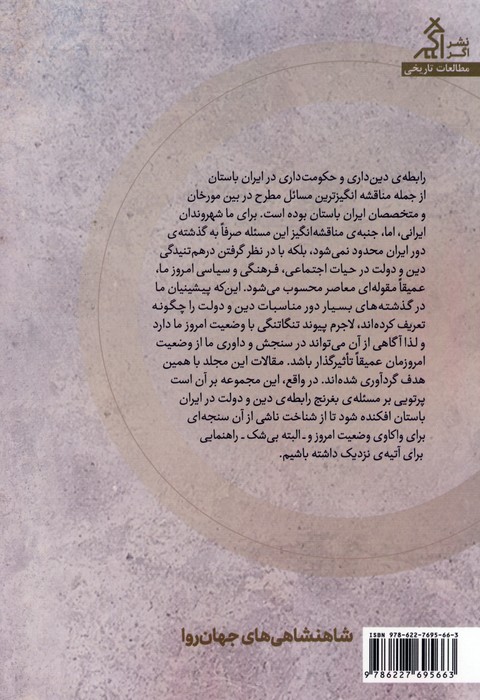 نشر
اگر
مطالعات تاریخی
رابطه‌ی دین‌داری و حکومت‌داری در ایران باستان
از جمله مناقشه انگیزترین مسائل مطرح در بین مورخان
و متخصصان ایران باستان بوده است. برای ما شهروندان
ایرانی، اما، جنبه‌ی مناقشه‌انگیز این مسئله صرفاً به گذشته‌ی
دور ایران محدود نمی‌شود، بلکه با در نظر گرفتن درهم‌تنیدگی
دین و دولت در حیات اجتماعی، فرهنگی و سیاسی امروز ما،
عمیقاً مقوله‌ای معاصر محسوب می‌شود. این‌که پیشینیان ما
در گذشته‌های بسیار دور مناسبات دین و دولت را چگونه
تعریف کرده‌اند، لاجرم پیوند تنگاتنگی با وضعیت امروز ما دارد
و لذا آگاهی از آن می‌تواند در سنجش و داوری ما از وضعیت
امروزمان عمیقاً تأثیرگذار باشد. مقالات این مجلد با همین
هدف گردآوری شده‌اند. در واقع، این مجموعه بر آن است
پرتویی بر مسئله‌ی بغرنج رابطه‌ی دین و دولت در ایران
باستان افکنده شود تا از شناخت ناشی از آن سنجه‌ای
برای واکاوی وضعیت امروز و ـ البته بی‌شک ـ راهنمایی
برای آتیه‌ی نزدیک داشته باشیم.
شاهنشاهی‌های جهان‌روا
ISBN 978-622-7695-66-3
9786227695663